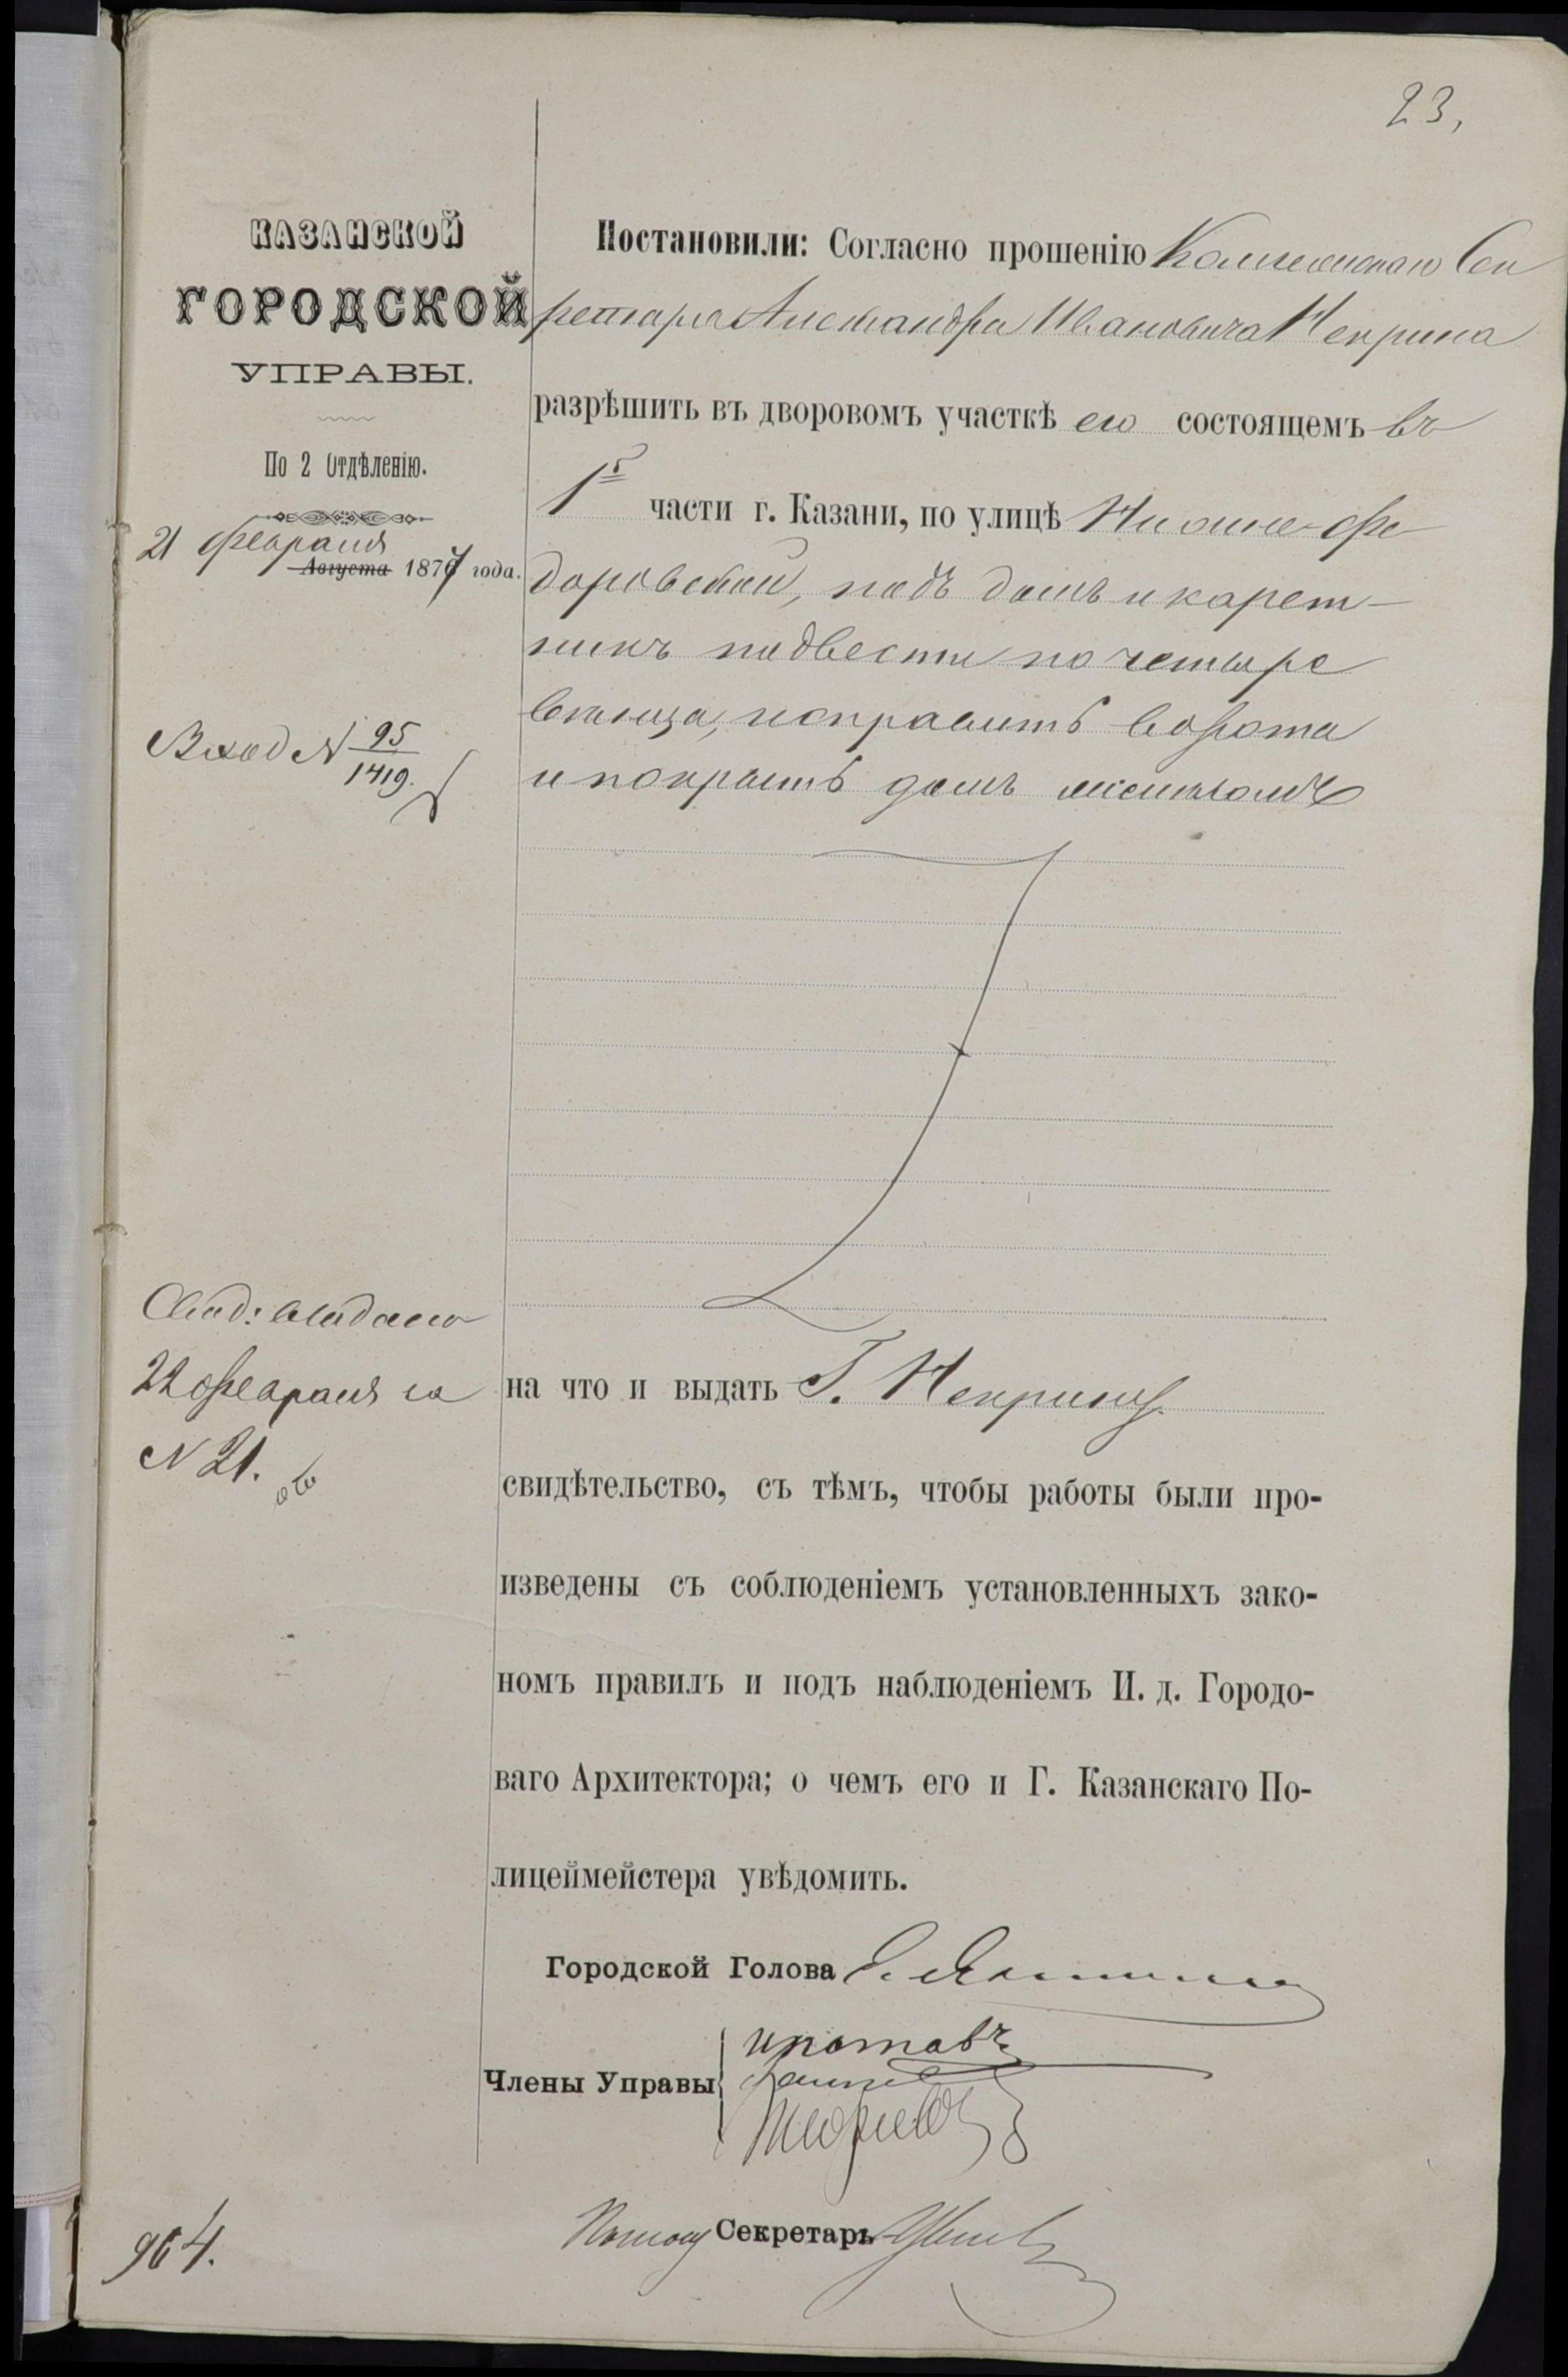 23,
КАЗАНСКОЙ
ГОРОДСКОЙ
УПРАВЫ.
По 2 Отдѣленію.
21 февраля
Августа 1877 года.
Вход N 95/1419.
Постановили: Согласно прошенію Коллежскаго Сек
ретаря Александра Ивановича Некрина
разрѣшить въ дворовомъ участкѣ его состоящемъ въ
1й части г. Казани, по улицѣ Нижне-Фе
доровской, подъ домъ и карет-
никъ подвести по четыре
венца, исправить ворота
и покрыть домъ желѣзомъ
Свид: выдано
22 февраля за
N 21.
на что и выдать Г. Некрину
свидѣтельство, съ тѣмъ, чтобы работы были про-
изведены съ соблюденіемъ установленныхъ зако-
номъ правилъ и подъ наблюденіемъ И. д. Городо-
ваго Архитектора; о чемъ его и Г. Казанскаго По-
лицеймейстера увѣдомить.
Городской Голова
Члены Управы
Секретарь
964.